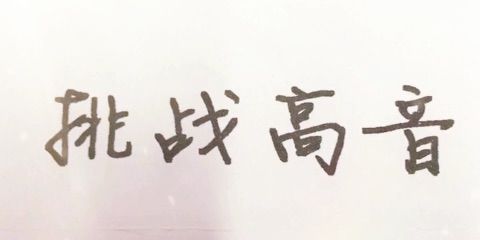 挑战高音